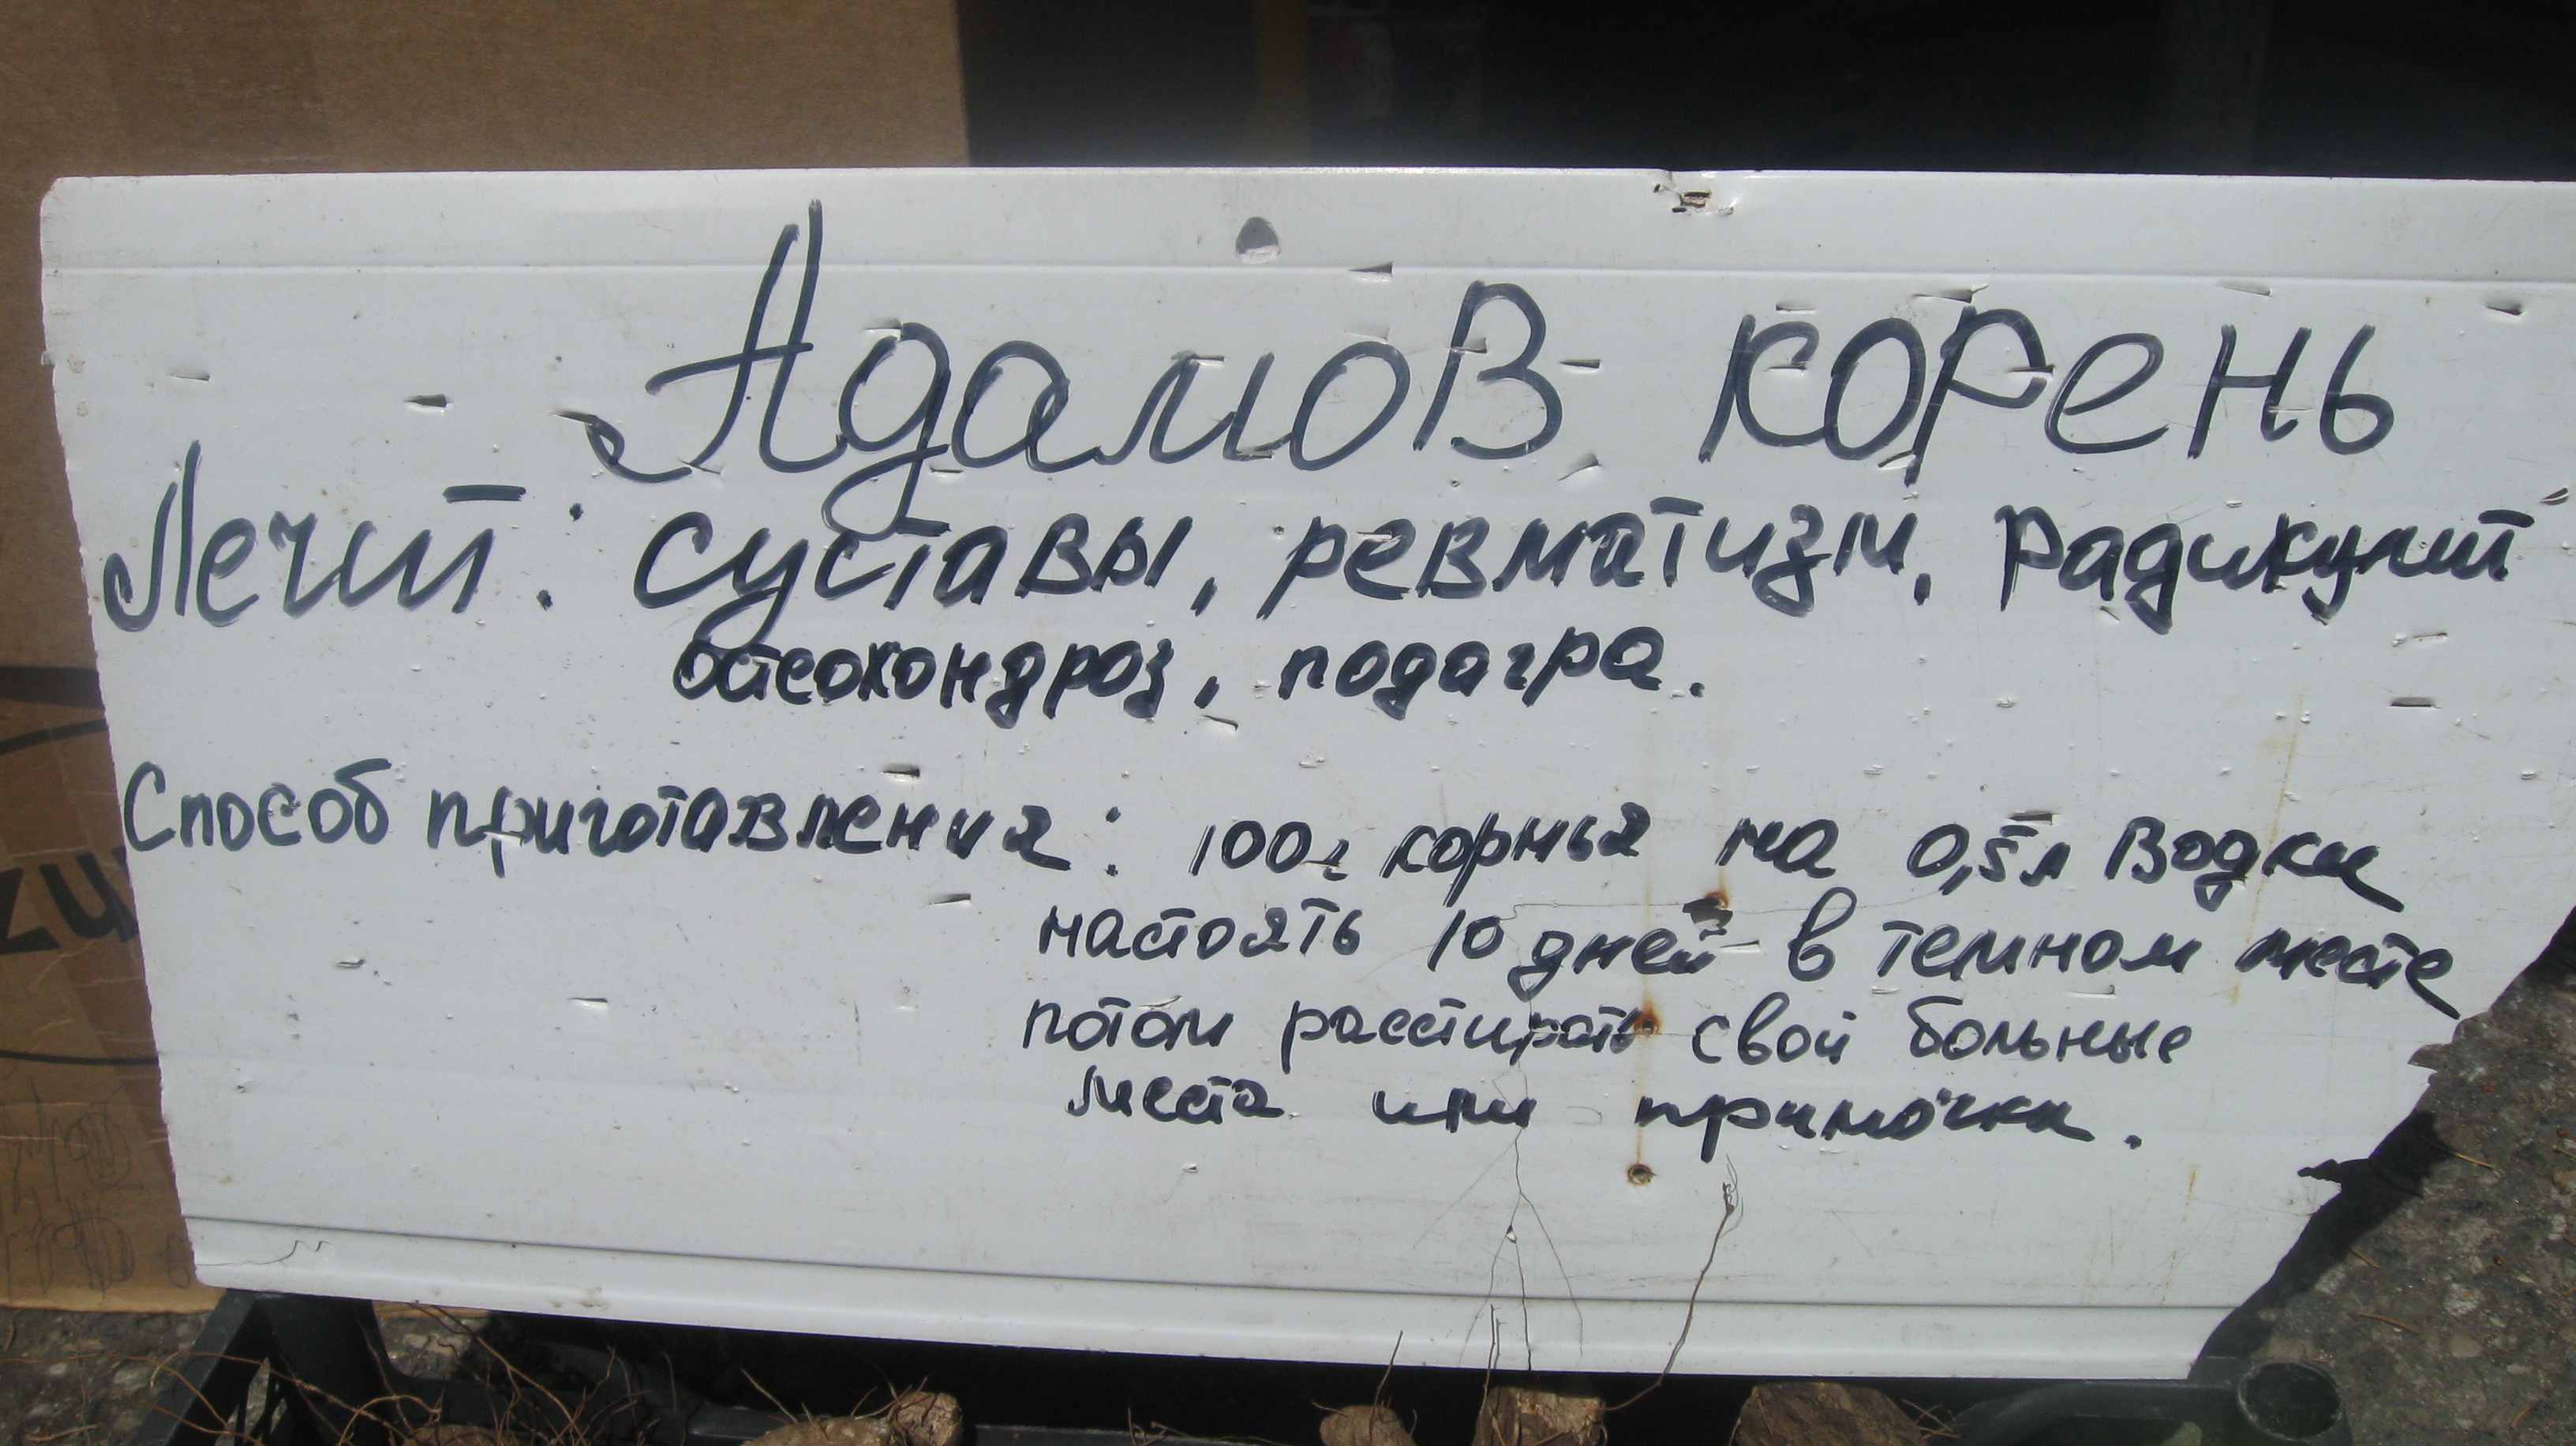 Адамов корень
Лечит: суставы, ревматизм, радикулит
остеохондроз, подагра.
Способ приготавления: 100г корнья на 0,5л водки
настоять 10 дней в темном месте
потом расстирать свой больные
места или примочки.
zu